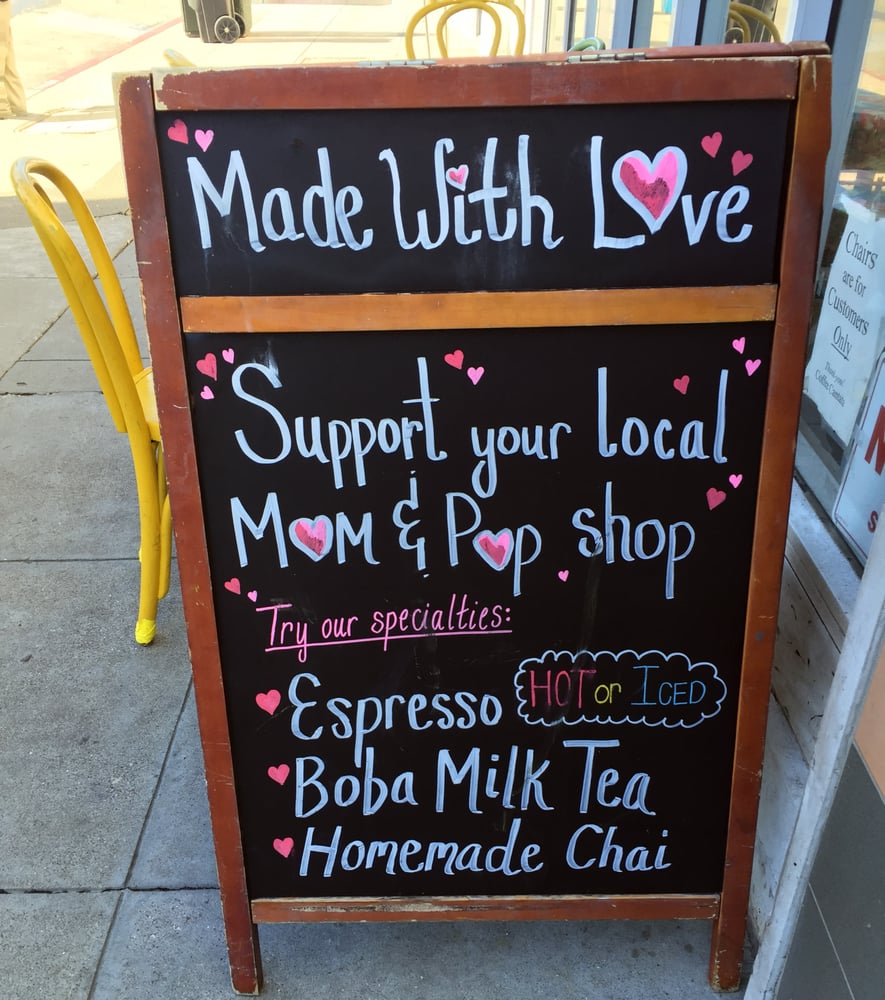 Made With Love
Support your local
MOM & Pop shop
Try our specialties:
Espresso HOT or ICED
Boba Milk Tea
Homemade Chai
Chairs
are for
Customers
Only
Thank you!